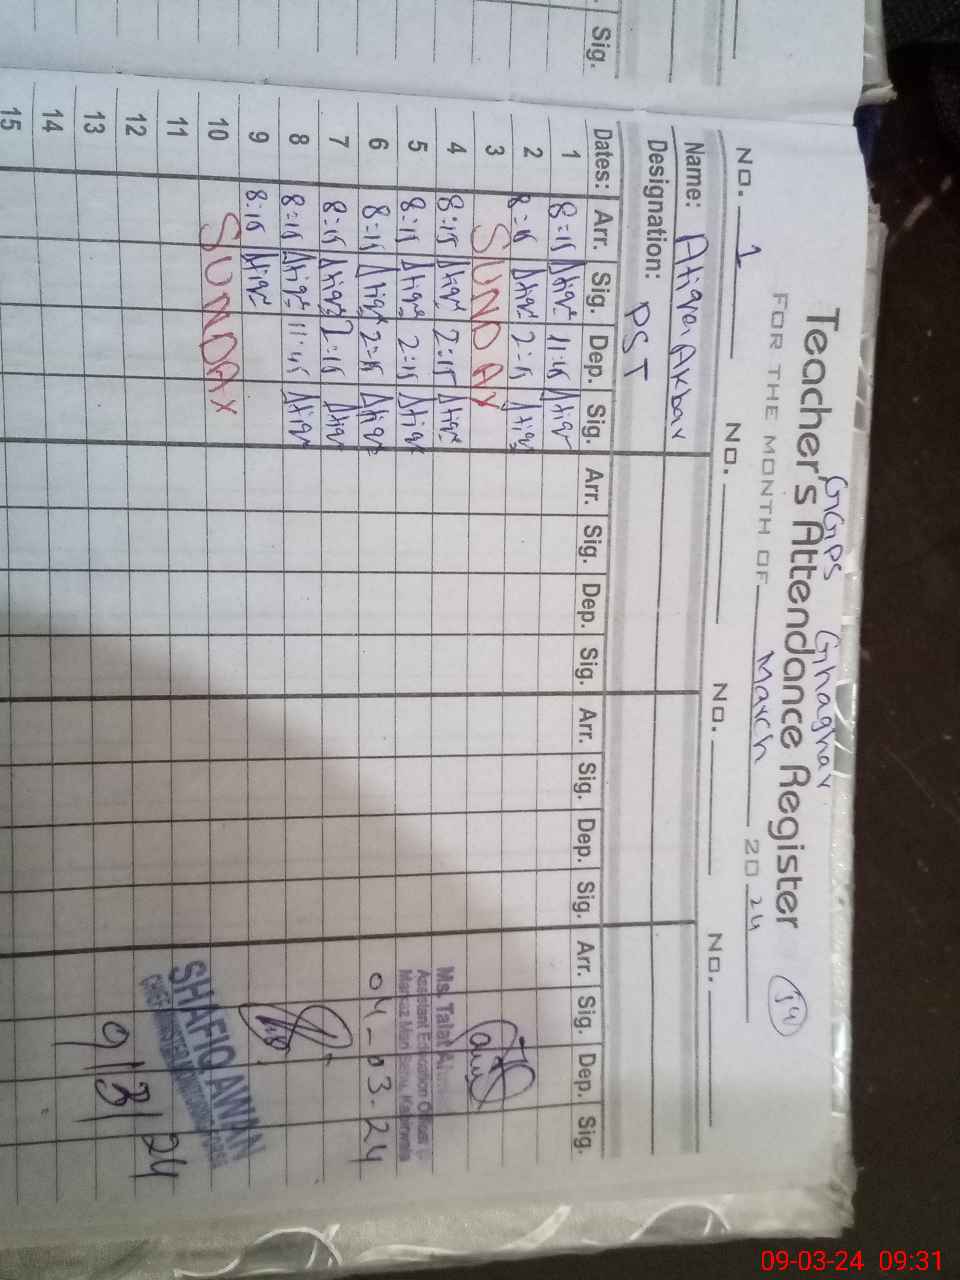 GGPS Ghaghar
Teacher's Attendance Register
FOR THE MONTH OF March 20 24
NO. 1 NO. NO. NO.
Name: Atiqa Akbar
Designation: PST
Sig.
Dates: Arr. Sig. Dep. Sig. Arr. Sig. Dep. Sig. Arr. Sig. Dep. Sig. Arr. Sig. Dep. Sig.
1 8=15 Atiqa 11:45 Atiqa
2 8=15 Atiqa 2=15 Atiqa
3 SUNDAY
4 8:15 Atiqa 2=15 Atiqa
5 8=15 Atiqa 2=15 Atiqa
6 8=15 Atiqa 2=15 Atiqa
7 8=15 Atiqa 2=15 Atiqa
8 8=15 Atiqa 11:45 Atiqa
9 8:15 Atiqa
10 SUNDAY
11
12
13
14
15
Ms. Talat
Assistant Education Officer
Markaz
04-03-24
SHAFIQ AWAN
9/3/24
09-03-24 09:31